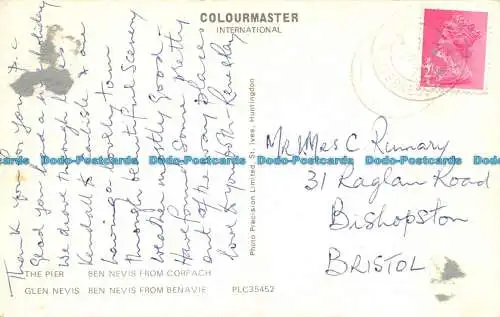 COLOURMASTER
INTERNATIONAL
Thank you for your p.c
Glad you had a holiday
We drove through Lakes
Kendall & Carlisle & are
having a lovely tour
through beautiful Scenery
weather mostly good
Have found some pretty
out of the way places
love to you both
Photo Precision Limited, St. Ives, Huntingdon
2½
Mr. Mrs C Rumary
31 Raglan Road
Bishopston
BRISTOL
THE PIER BEN NEVIS FROM CORPACH
GLEN NEVIS BEN NEVIS FROM BENAVIE PLC35452
Dodo-Postcards Dodo-Postcards Dodo-Postcards Dodo-Postcards